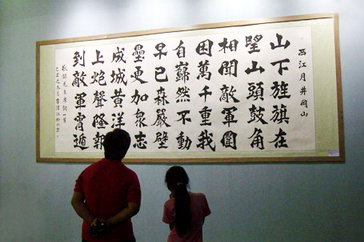 西江月 井岡山
山下旌旗在
望山頭鼓角
相聞敵軍圍
困萬千重我
自巋然不動
早已森嚴壁
壘更加衆志
成城黄洋
上炮聲隆報
到敵軍宵遁